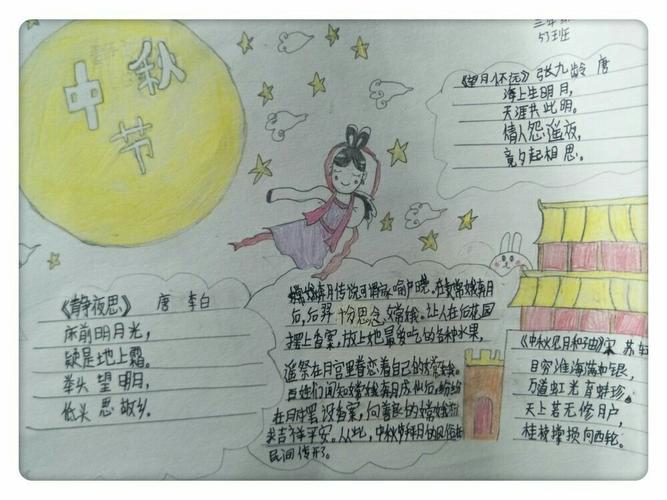 中秋节
三年
5)班
《望月怀远》张九龄 唐
海上生明月,
天涯共此明。
情人怨遥夜,
竟夕起相思。
《静夜思》 唐 李白
床前明月光,
疑是地上霜。
举头望明月,
低头思故乡.
嫦娥奔月传说可谓家喻户晓.在嫦娥奔月
后,后羿十分思念嫦娥.让人在后花园
摆上香案,放上她最爱吃的各种水果,
遥祭在月宫里眷恋着自己的嫦娥.
百姓们闻知嫦娥奔月成仙后,纷纷
在月下罢设香案,向善良的嫦娥
求吉祥平安。从此,中秋节拜月的风俗在
民间传开了.
《中秋见月和子由》宋 苏轼
目穷淮海满如银,
万道虹光育蚌珍。
天上若无修月户,
桂枝撑损向西轮。